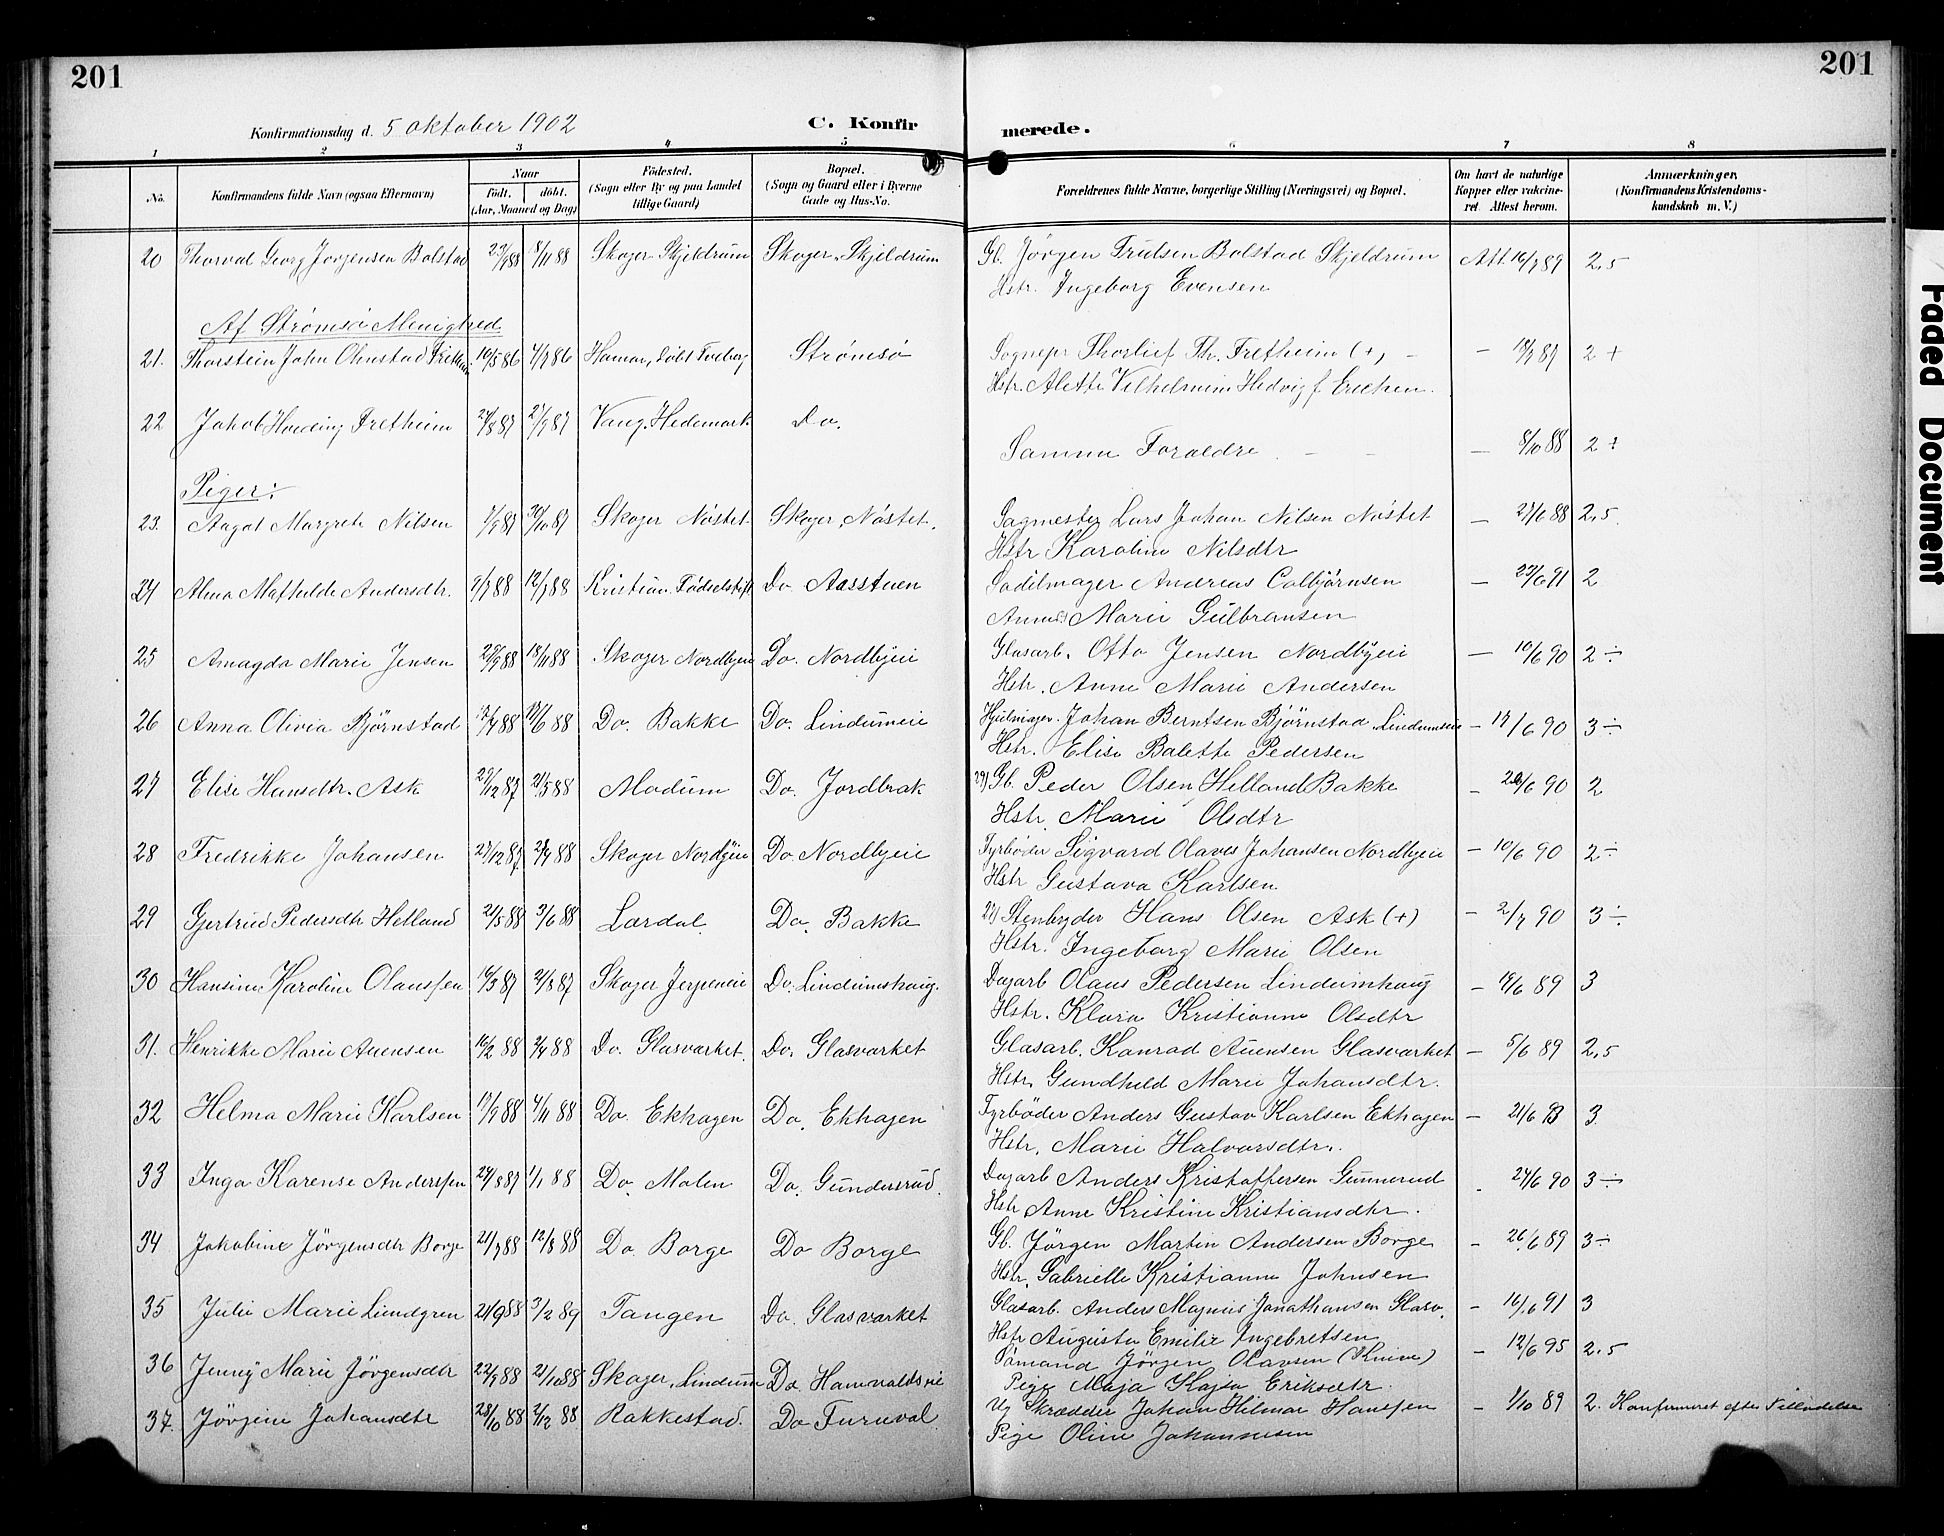 201
201
Konfirmationsdag d. 5 oktober 1902
C. Konfir
merede.
1 2 3 4 5 6 7 8
No. Konfirmandens fulde Navn (ogsaa Efternavn) Naar født. døbt. (Aar, Maaned og Dag) Fødested. (Sogn eller By og paa Landet tillige Gaard) Bopæl. (Sogn og Gaard eller i Byerne Gade og Hus-No. Forældrenes fulde Navne, borgerlige Stilling (Næringsvei) og Bopæl. Om havt de naturlige Kopper eller vakcineret. Attest herom. Anmærkninger. (Konfirmandens Kristendomskundskab m. V.)
20 Thorval Georg Jørgensen Bolstad 23/9 88 18/11 88 Skoger Skjeldrum Skoger Skjeldrum Gb. Jörgen Trulsen Bolstad Skjeldrum Att. 16/7 89 2,5
Hstr. Ingeborg Evensen
Af Strømsø Menighed
21. Thorstein John Ohnstad Fretheim 10/5 86 4/7 86 Hamar, døbt Strømsø Sognepr Thorlief Th. Fretheim (+) - 18/7 87 2 +
Hstr. Alette Vilhelmine Hedvig f. Erichsen.
22 Jakob Fretheim 27/9 87 Vang. Hedemark Do. Samme Foraldre - 8/10 88 2 ÷
Piger:
23. Aagot Margrete Nilsen 7/9 87 30/10 87 Skoger Nöstet Skoger Nöstet. Sagmester Lars Johan Nilsen Nöstet - 27/6 88 2,5.
Hstr Karoline Nilsdtr
24 Alma Mathilde Andersdtr. 9/7 88 12/7 88 Kristian. Fødselstift Do Aasstuen Sadelmager Andreas Colbjörnsen - 22/6 91 2
Marie Gulbransen
25 Amagda Marie Jensen 29/9 88 18/11 88 Skoger Nordbyeie Do. Nordbyeie Glasarb. Otto Jensen Nordbyeie - 10/6 90 2 ÷
Hstr. Anne Marie Andersen
26 Anna Olivia Bjørnstad 17/6 88 Do. Bakke Do. Lindumeie Hjulmager. Johan Berntsen Bjørnstad Lindumeie - 14/6 90 3 ÷
Hstr. Elise Balette Pedersen
27 Elise Hansdtr. Ask 29/12 87 21/5 88 Modum Do. Jordbrak 29) Gb. Peder Olsen Helland Bakke - 26/6 90 2
Hstr. Marie Olsdtr
28 Fredrikke Johansen 27/12 87 2/4 88 Skoger Nordbyeie Do. Nordbyeie Fyrbøder Sigvard Olaves Johansen Nordbyeie - 10/6 90 2 ÷
Hstr Gustava Karlsen
29 Gjertrud Pedersdtr Helland 21/5 88 3/6 88 Lærdal. Do. Bakke 27) Stenbryder Hans Olsen Ask (+) - 2/7 90 3 ÷
Hstr. Ingeborg Marie Olsen
30 Hansine Karoline Olaussen 16/3 87 21/8 87 Skoger Jerpeneie Do. Lindumshaug. Dagarb Olaus Pedersen Lindumhaug - 19/6 89 3
Hstr. Klara Kristianne Olsdtr
31. Henrikke Marie Auensen 16/2 88 2/4 88 Do. Glasværket. Do. Glasværket Glasarb. Konrad Auensen Glasværket - 5/6 89 2,5
Hstr. Gundhild Marie Johansdtr.
32 Helma Marie Karlsen 17/9 88 4/11 88 Do. Ekhagen Do. Ekhagen Fyrbøder Anders Gustav Karlsen Ekhagen - 21/6 93 3.
Hstr. Marie Halvorsdtr.
33 Inga Karense Anderssen 27/8 87 1/1 88 Do. Molen Do. Gundersrud. Dagarb Anders Kristoffersen Gunnerud 24/6 90 3 ÷
Hstr Anne Kristine Kristiansdtr.
34 Jakobine Jörgensdtr Borge 21/7 88 12/8 88 Do. Borge Do Borge Gb. Jörgen Martin Andersen Borge - 26/6 89 3 ÷
Hstr. Gabrielle Kristianne Johnsen
35 Julie Marie Lundgren 21/9 88 3/2 89 Tangen Do. Glasværket Glasarb. Anders Magnus Jonathansen Glasv. - 16/6 91 3
Hstr Augusta Emilie Ingebretsen
36 Jenny Marie Jörgensdtr 22/9 88 21/10 88 Skoger, Lindum Do. Hamvaldseie Sømand Jörgen Olavsen (Knive) - 12/6 95 2,5
Pige Maja Kajsa Eriksdtr.
37. Jörgine Johansdtr 28/10 88 2/12 88 Rakkestad. Do Furuvol Ug Skrædder Johan Hilmar Hanssen - 1/10 89 2. Konfirmeret efter Tilladelse
Pige Oline Johannesen
Faded Document